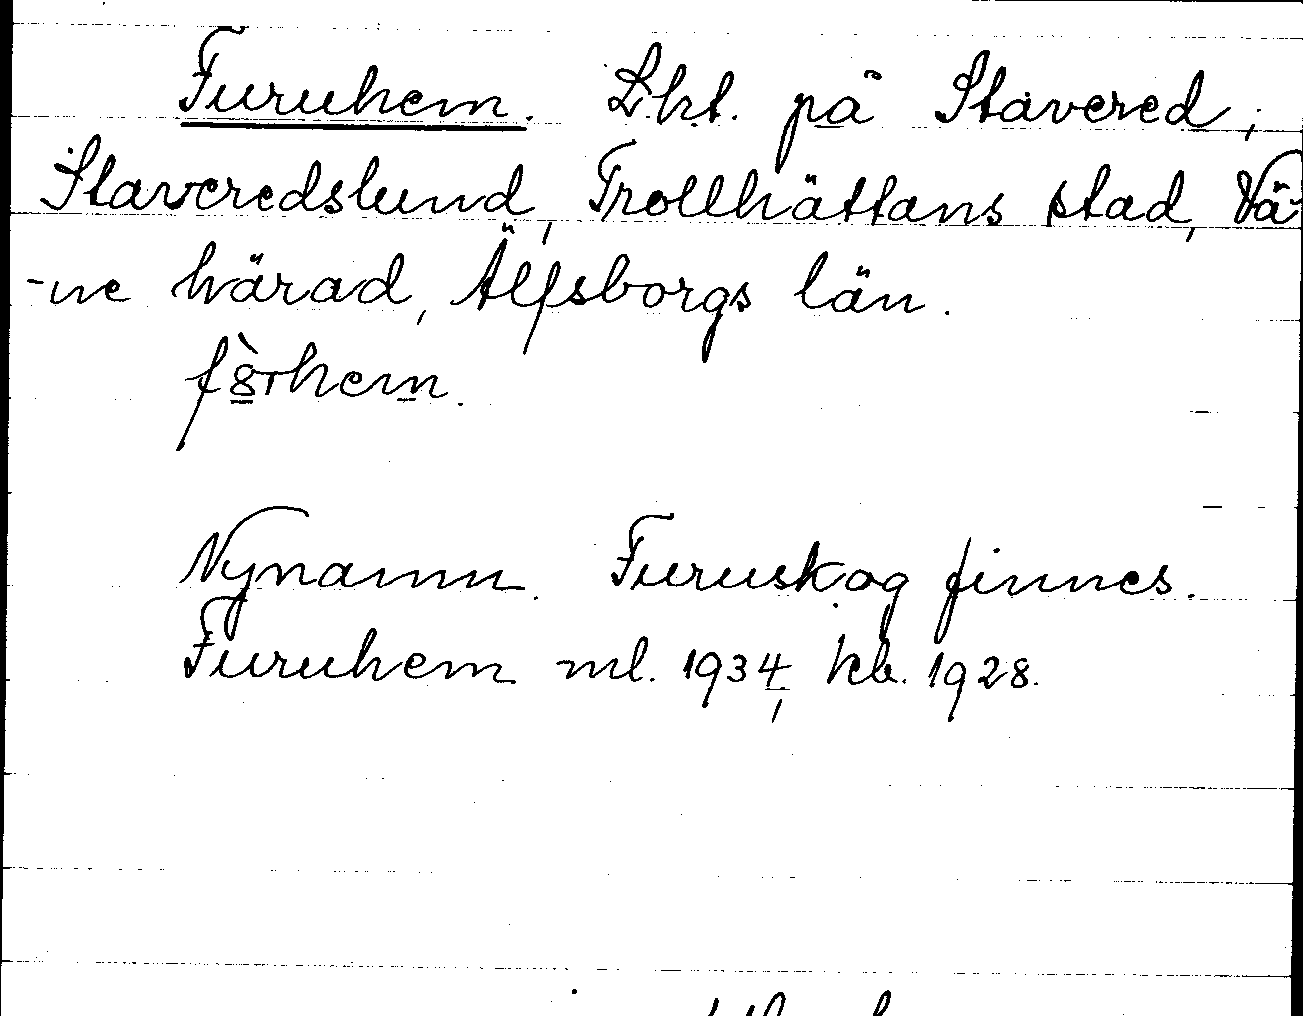 Furuhem. Lht. på Stavered,
Staveredslund, Trollhättans stad, Vä-
-ne härad, Älfsborgs län.
Nynamn. Furuskog finnes.
Furuhem ml. 1934, kb. 1928.